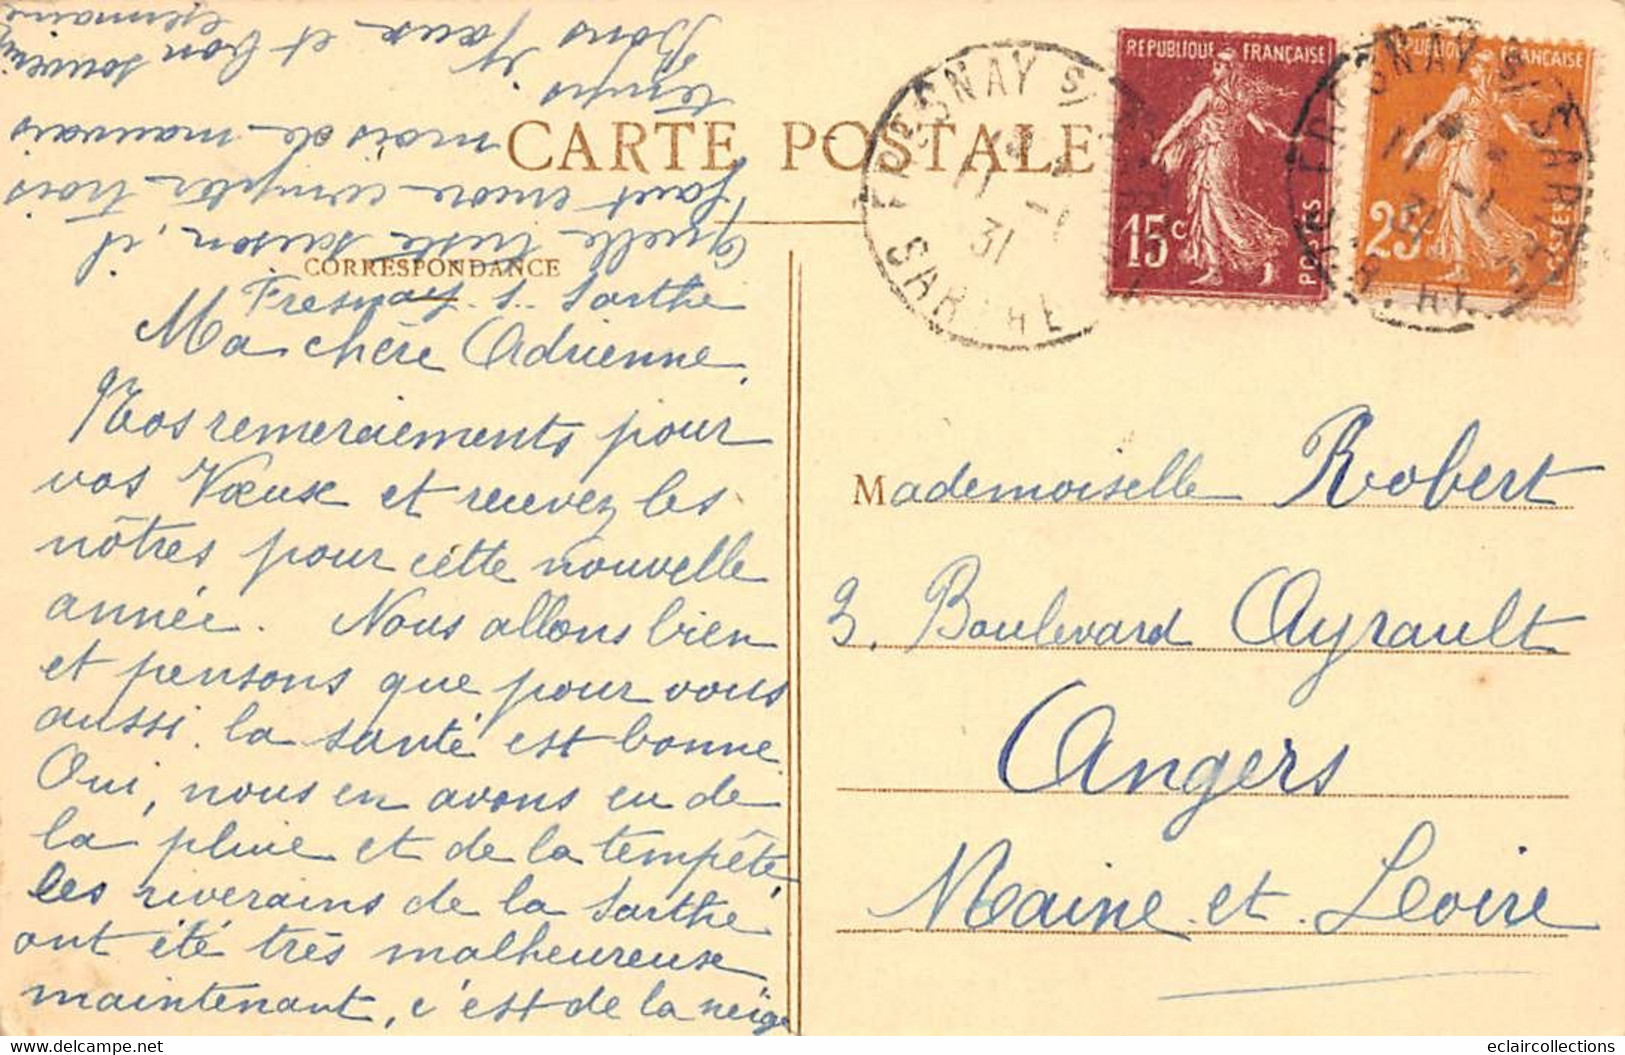 CARTE POSTALE
CORRESPONDANCE
Fresnay. s. Sarthe
Ma chère Adrienne,
Nos remerciements pour
vos Vœux et recevez les
nôtres pour cette nouvelle
année. Nous allons bien
et pensons que pour vous
aussi, la santé est bonne
Oui, nous en avons eu de
la pluie et de la tempête,
les riverains de la Sarthe
ont été très malheureux
maintenant, c'est de la neige
Quelle triste saison, il
faut encore compter trois
mois de mauvais
temps !!
Bons Vœux et bon souvenir
Germaine
REPUBLIQUE FRANÇAISE
15c
POSTES
REPUBLIQUE FRANÇAISE
25c
POSTES
FRESNAY S/ SARTHE
SARTHE
11 -1
31
FRESNAY S/ SARTHE
SARTHE
11 -1
31
Mademoiselle Robert
3. Boulevard Ayrault
Angers
Maine et Loire
delcampe.net
eclaircollections